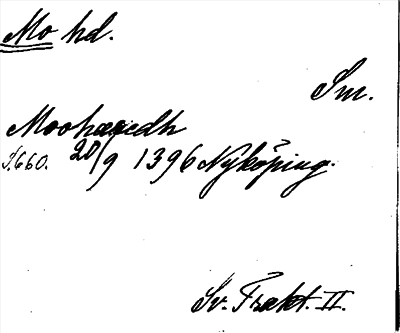 Mo hd.
Sm.
Mooheredh
S. 660. 20/9 1396 Nyköping.
Sv. Trakt. II.